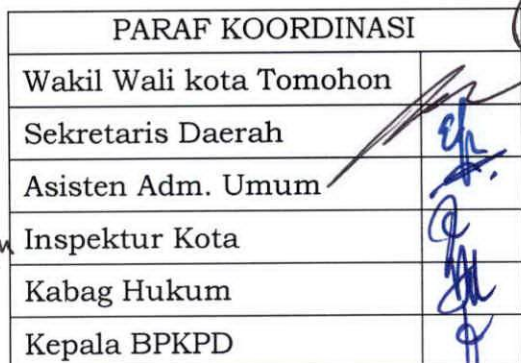 PARAF KOORDINASI
Wakil Wali kota Tomohon
Sekretaris Daerah
Asisten Adm. Umum
Inspektur Kota
Kabag Hukum
Kepala BPKPD